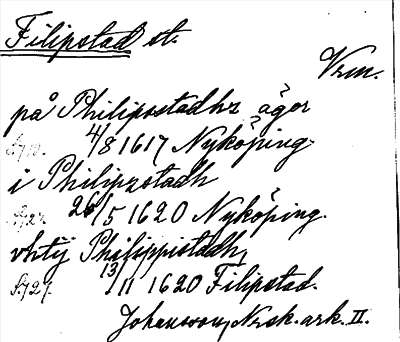 Filipstad st.
Vrm.
på Philipostadhz ägor
4/8 1617 Nyköping
i Philipzstadh
26/5 1620 Nyköping.
vthij Philippistadh,
13/11 1620 Filipstad.
Johansson, Nrsk. ark. II.